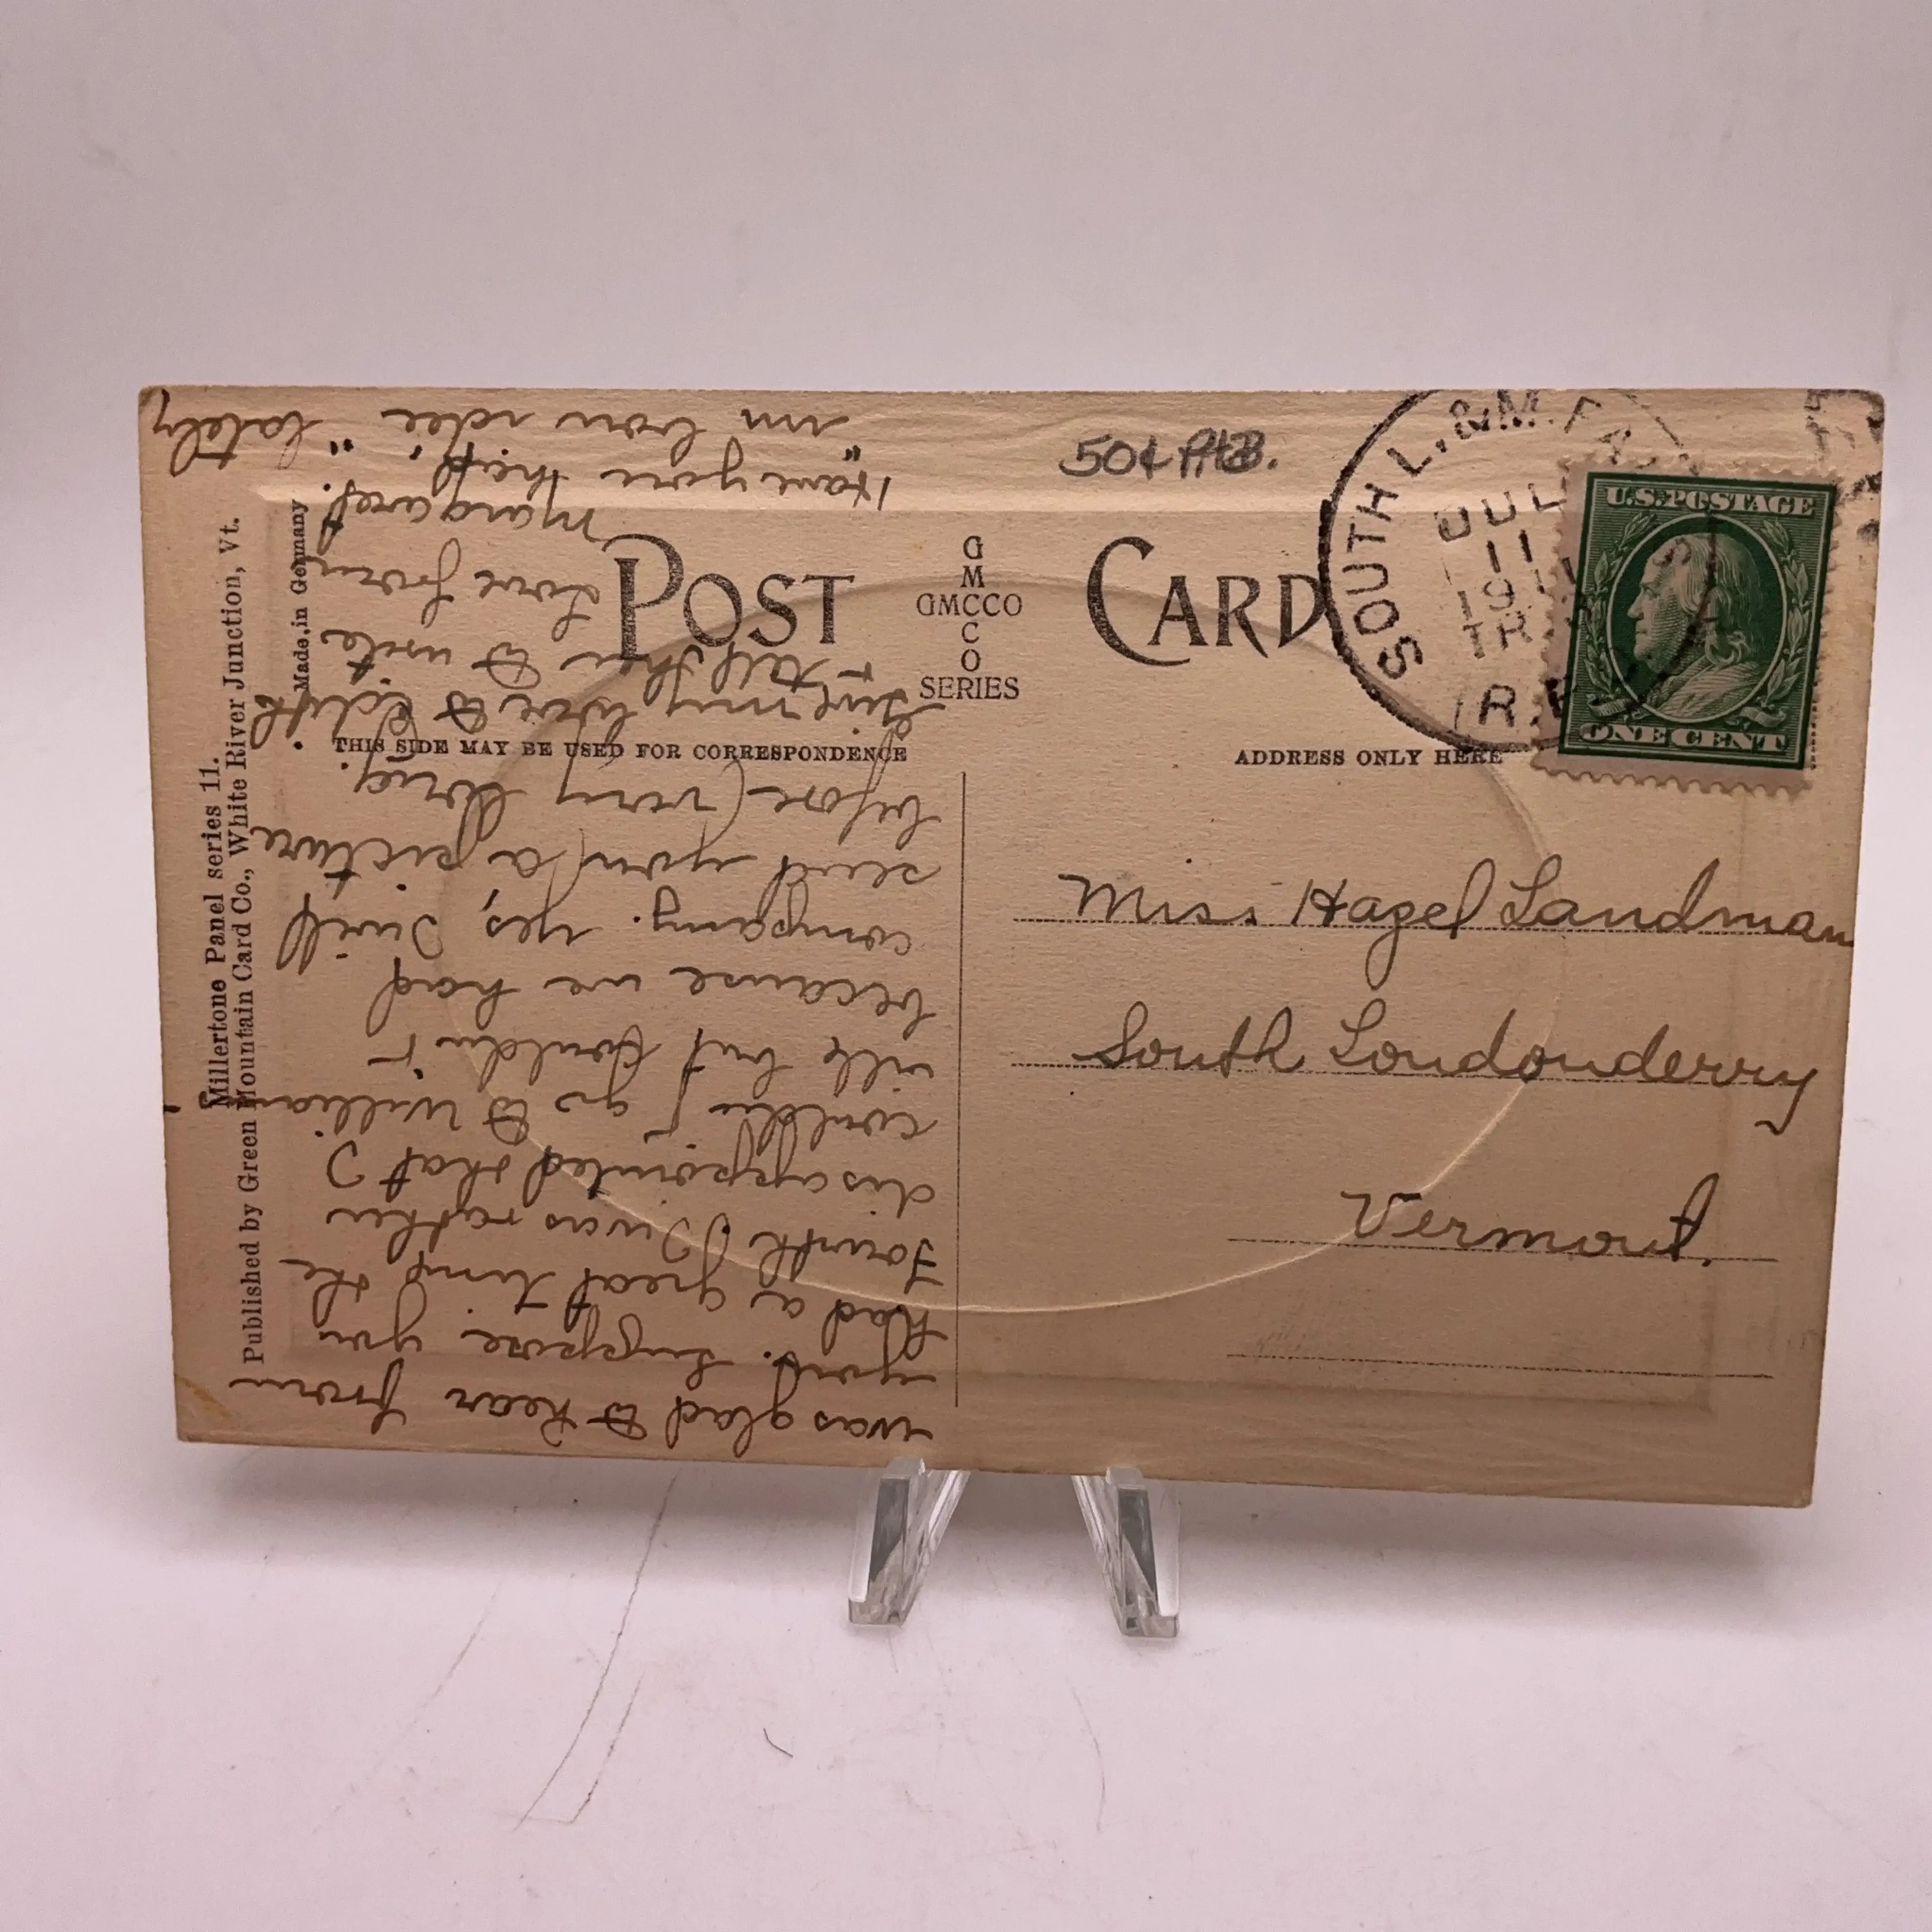 50¢ PHB.
POST CARD
G
M
C
GMCCO
C
O
SERIES
THIS SIDE MAY BE USED FOR CORRESPONDENCE
ADDRESS ONLY HERE
SOUTH L. & M. FA
JUL
11
19
TR
R.P
U.S. POSTAGE
ONE CENT
Miss Hazel Landman
South Londonderry
Vermont.
Millertone Panel series 11.
Published by Green Mountain Card Co., White River Junction, Vt.
Made in Germany
was glad to hear from
you. Suppose you
had a great time the
Fourth I was rather
disappointed that I
couldn't go to Williams
ville but couldn't
because we had
company. Yes, I will
send you a picture
before very long.
Give my love to Edith
& tell her to write
Love from
Margaret.
Have you kept
"im bon idee" lately